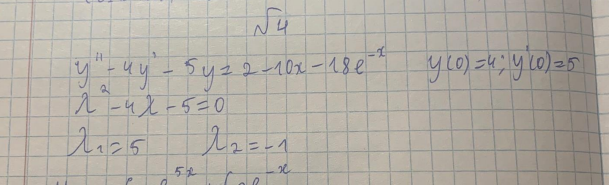 √4
y'' - 4y' - 5y = 2 - 10x - 18e^{-x}    y(0) = 4; y'(0) = 5
λ² - 4λ - 5 = 0
λ₁ = 5    λ₂ = -1